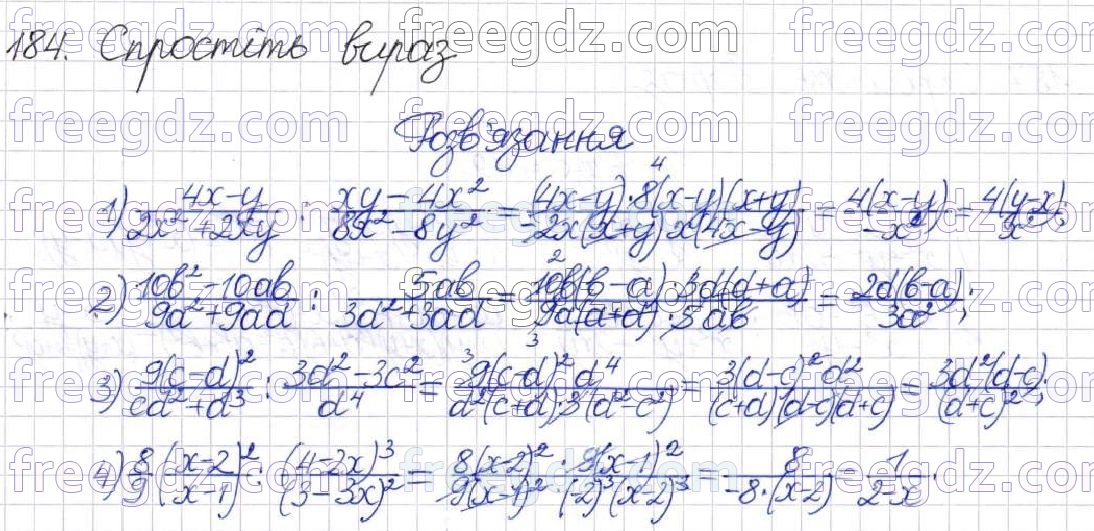 184. Спростіть вираз
Розв'язання
1) (4x-y)/(2x²+2xy) : (xy-4x²)/(8x²-8y²) = ((4x-y)·8(x-y)(x+y))/(-2x(x+y)x(4x-y)) = 4(x-y)/(-x²) = 4(y-x)/x²;
2) (10b²-10ab)/(9a²+9ad) : 5ab/(3d²+3ad) = (10b(b-a)·3d(d+a))/(9a(a+d)·5ab) = 2d(b-a)/(3a²);
3) 9(c-d)²/(cd²+d³) : (3d²-3c²)/d⁴ = (9(c-d)²d⁴)/(d²(c+d)·3(d²-c²)) = (3(d-c)²d²)/((c+d)(d-c)(d+c)) = 3d²(d-c)/(d+c)²;
4) 8/9 ((x-2)/(x-1))² : (4-2x)³/(3-3x)² = (8(x-2)²·9(x-1)²)/(9(x-1)²·(-2)³(x-2)³) = 8/(-8·(x-2)) = 1/(2-x).
freegdz.com freegdz.com freegdz.com